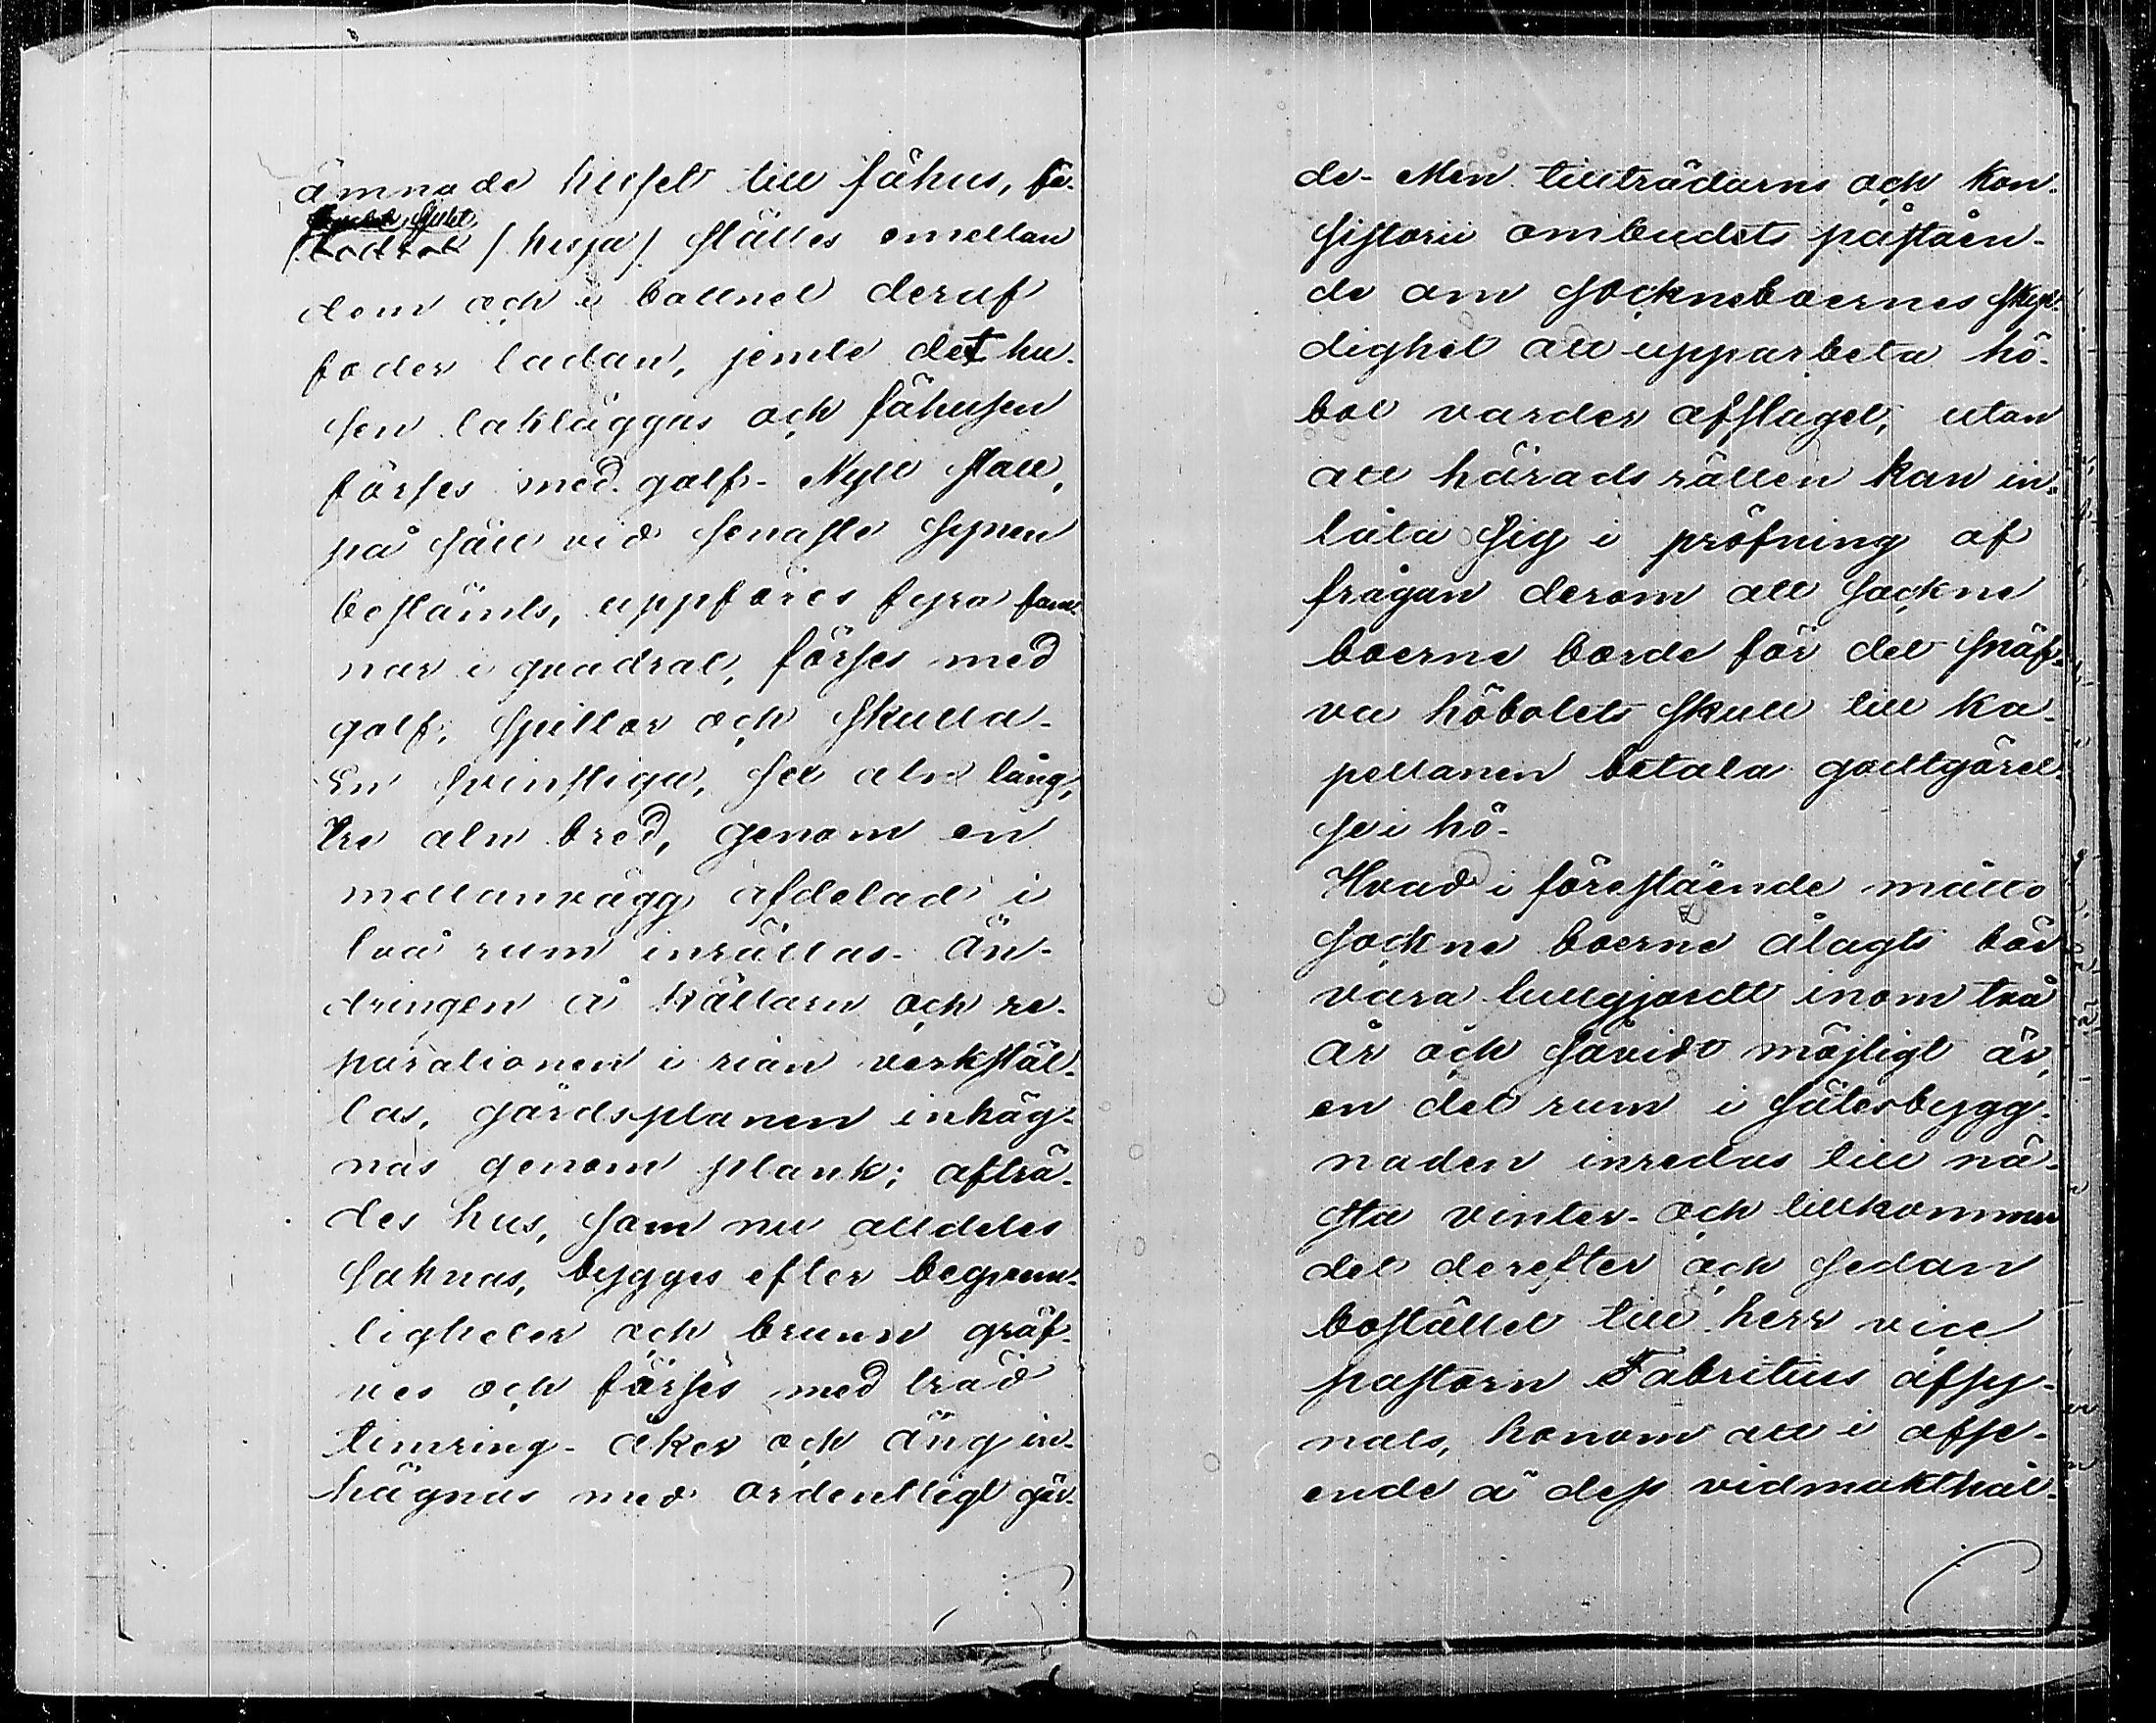 ämnade huset till fähus,
/ hespa / ställes emellan
dem och i bottnet deruf
foder ladan, jemte det hu-
sen takläggas och fähusen
förses med golf. Nytt stall,
på sätt vid senaste synen
bestämts, uppföres fyra fam-
nar i quadrat, förses med
golf, spiltor och skulla.
En svinstiga, sex aln lång,
tre aln bred, genom en
mellanvägg afdelad i
två rum inrättas. Än-
dringen å källarn och re-
parationen i rian verkstäl-
las, gårdsplanen inhäg-
nas genom plank; afträ-
des hus, som nu alldeles
saknas, bygges efter beqvem-
ligheter och brunn gräf-
ves och förses med träd
timring. åker och äng in-
hägnas med ordentligt gär-
de. Men tillträdarns och kon-
sistorii ombudets påståen-
de om sockneboernes skyl-
dighet att upparbeta hö-
bol varder afslaget, utan
att häradsrätten kan in-
låta sig i pröfning af
frågan derom att sockne
boerne borde för det
va höbolets skull till ka-
pellanen betala godtgörel-
se i hö.
Hvad i förestående måtto
sockne boerne ålagts bör
vara fullgjordt inom två
år och såvidt möjligt är,
en del rum i sätesbygg-
naden inredas till nä-
sta vinter. och tillkommer
det derefter och sedan
bostället till herr vice
pastorn Fabritius afsy-
nats, honom att i afse-
ende å dess vidmakthål-